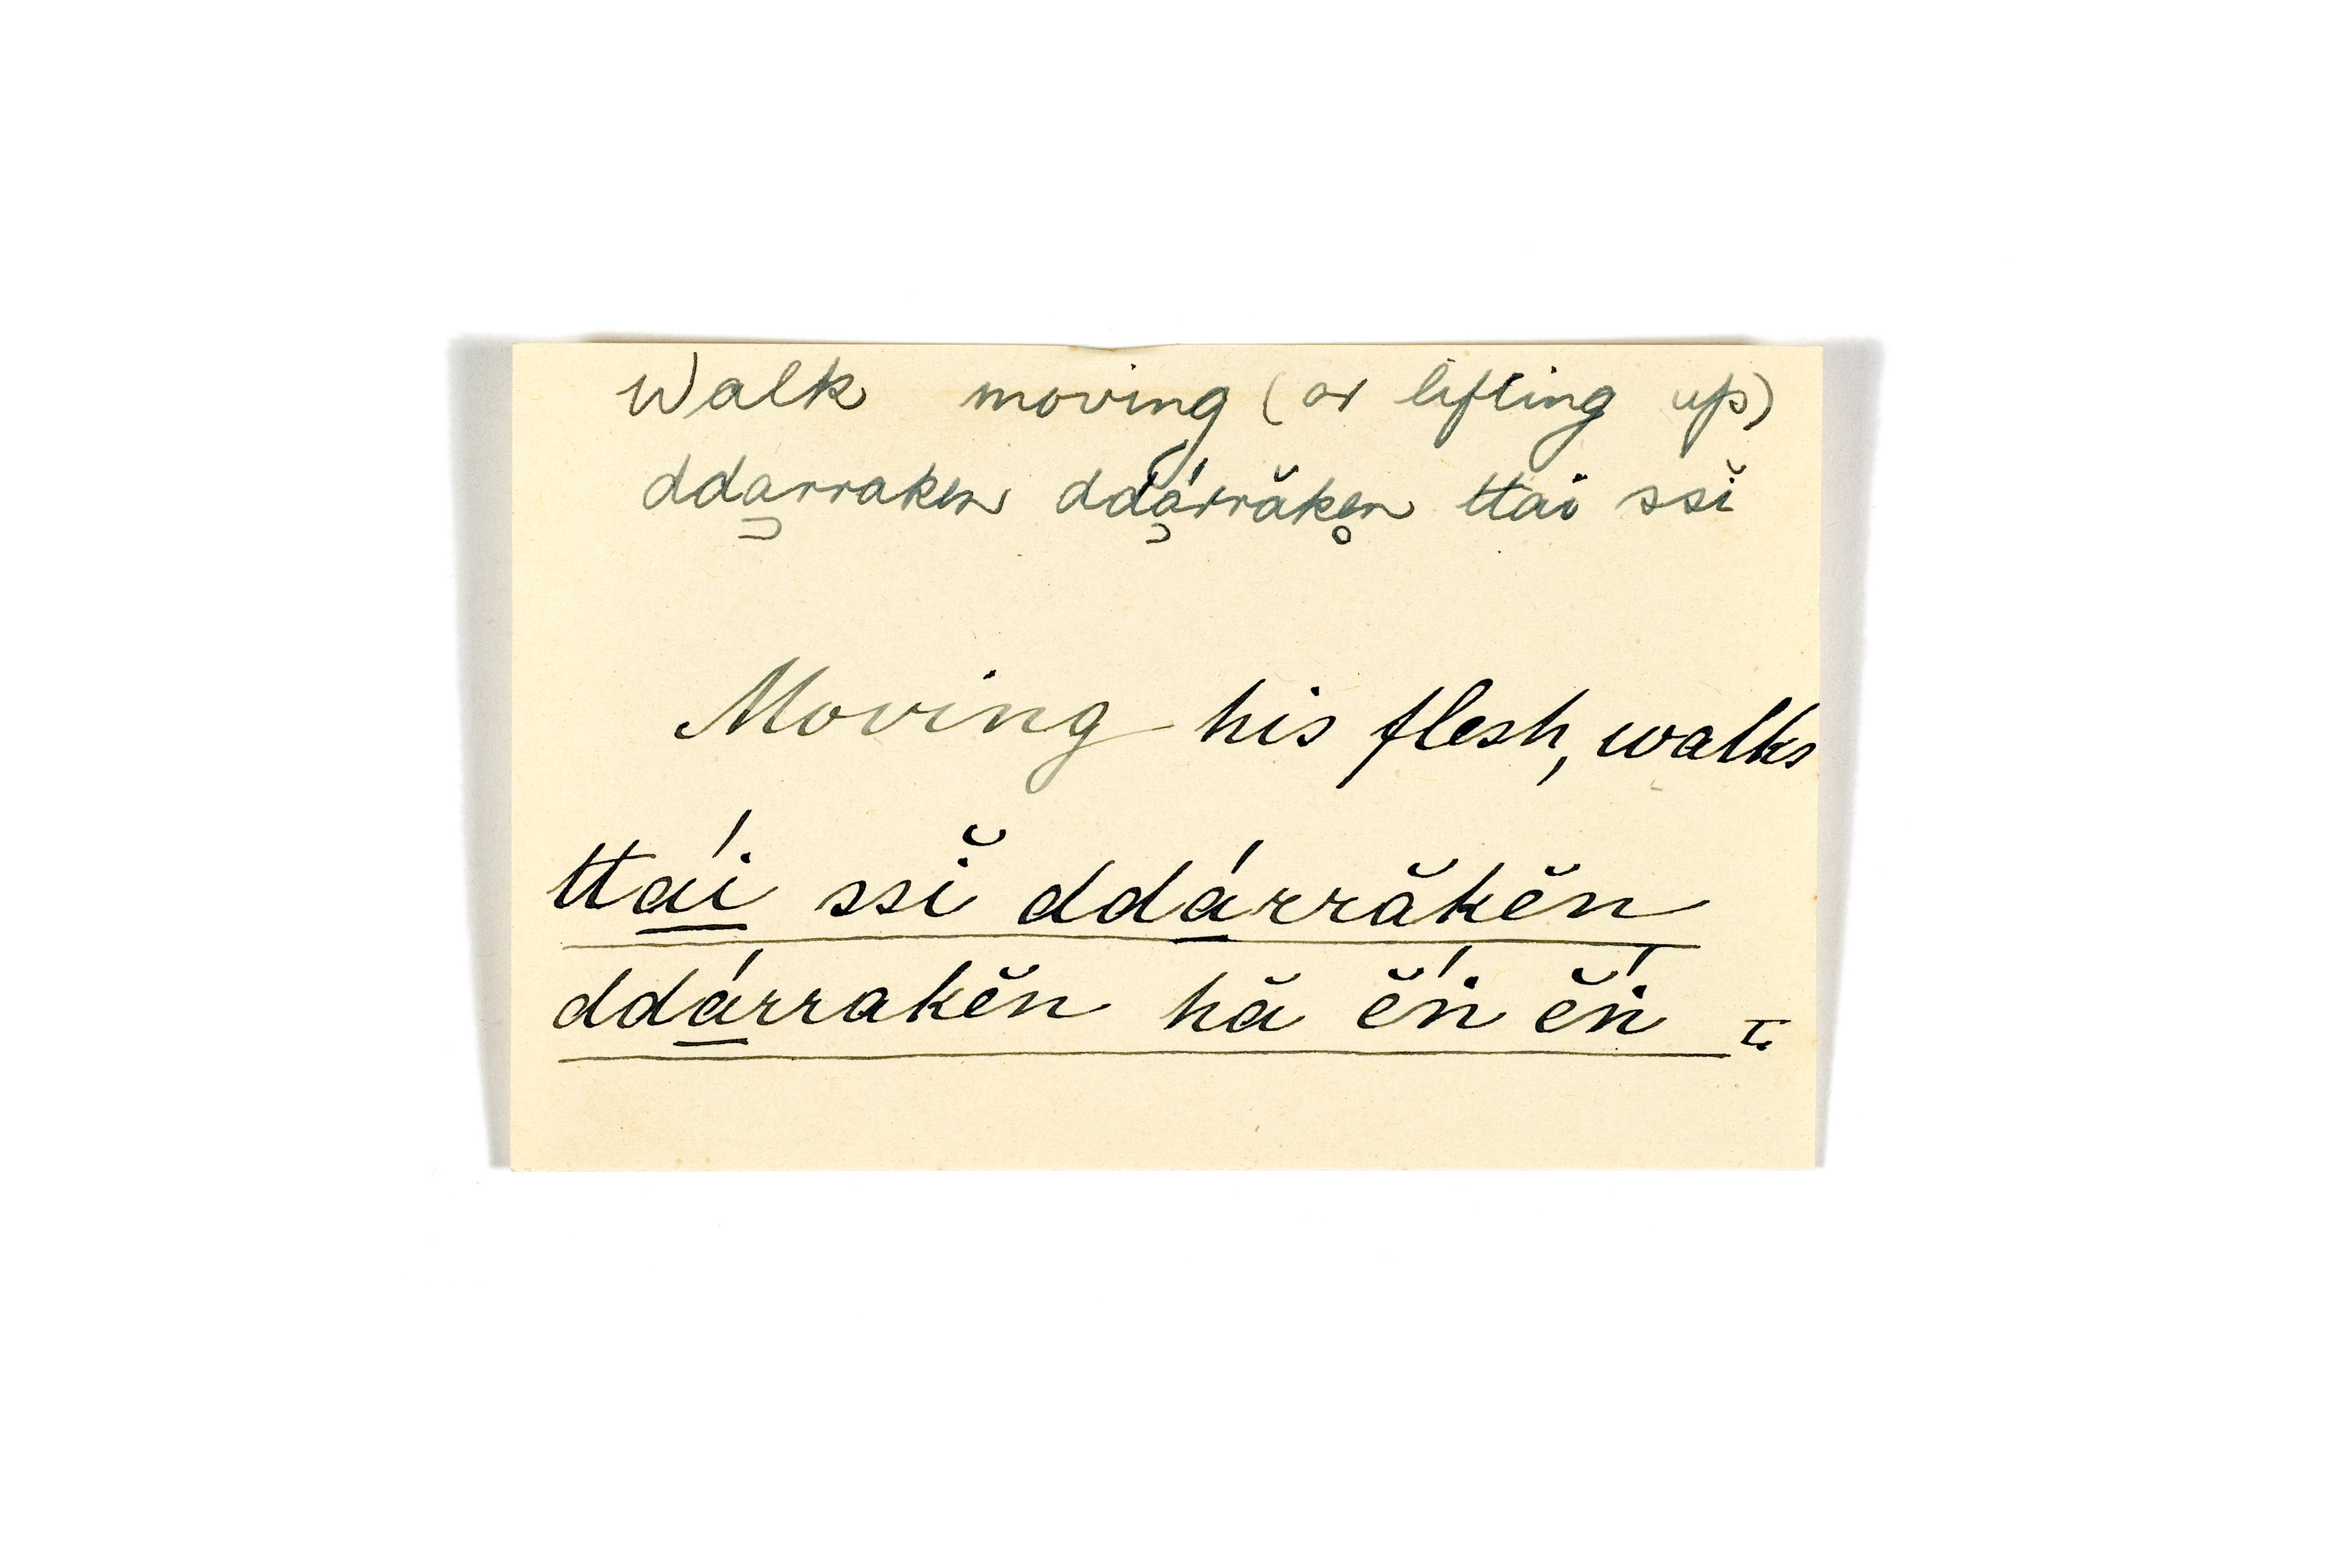 Walk moving (or lifting up)
ddarraken ddárrăken ttai ssĭ
Moving his flesh, walks
ttái ssĭ ddárrăkĕn
ddárrakĕn hă ĕń ĕń I.